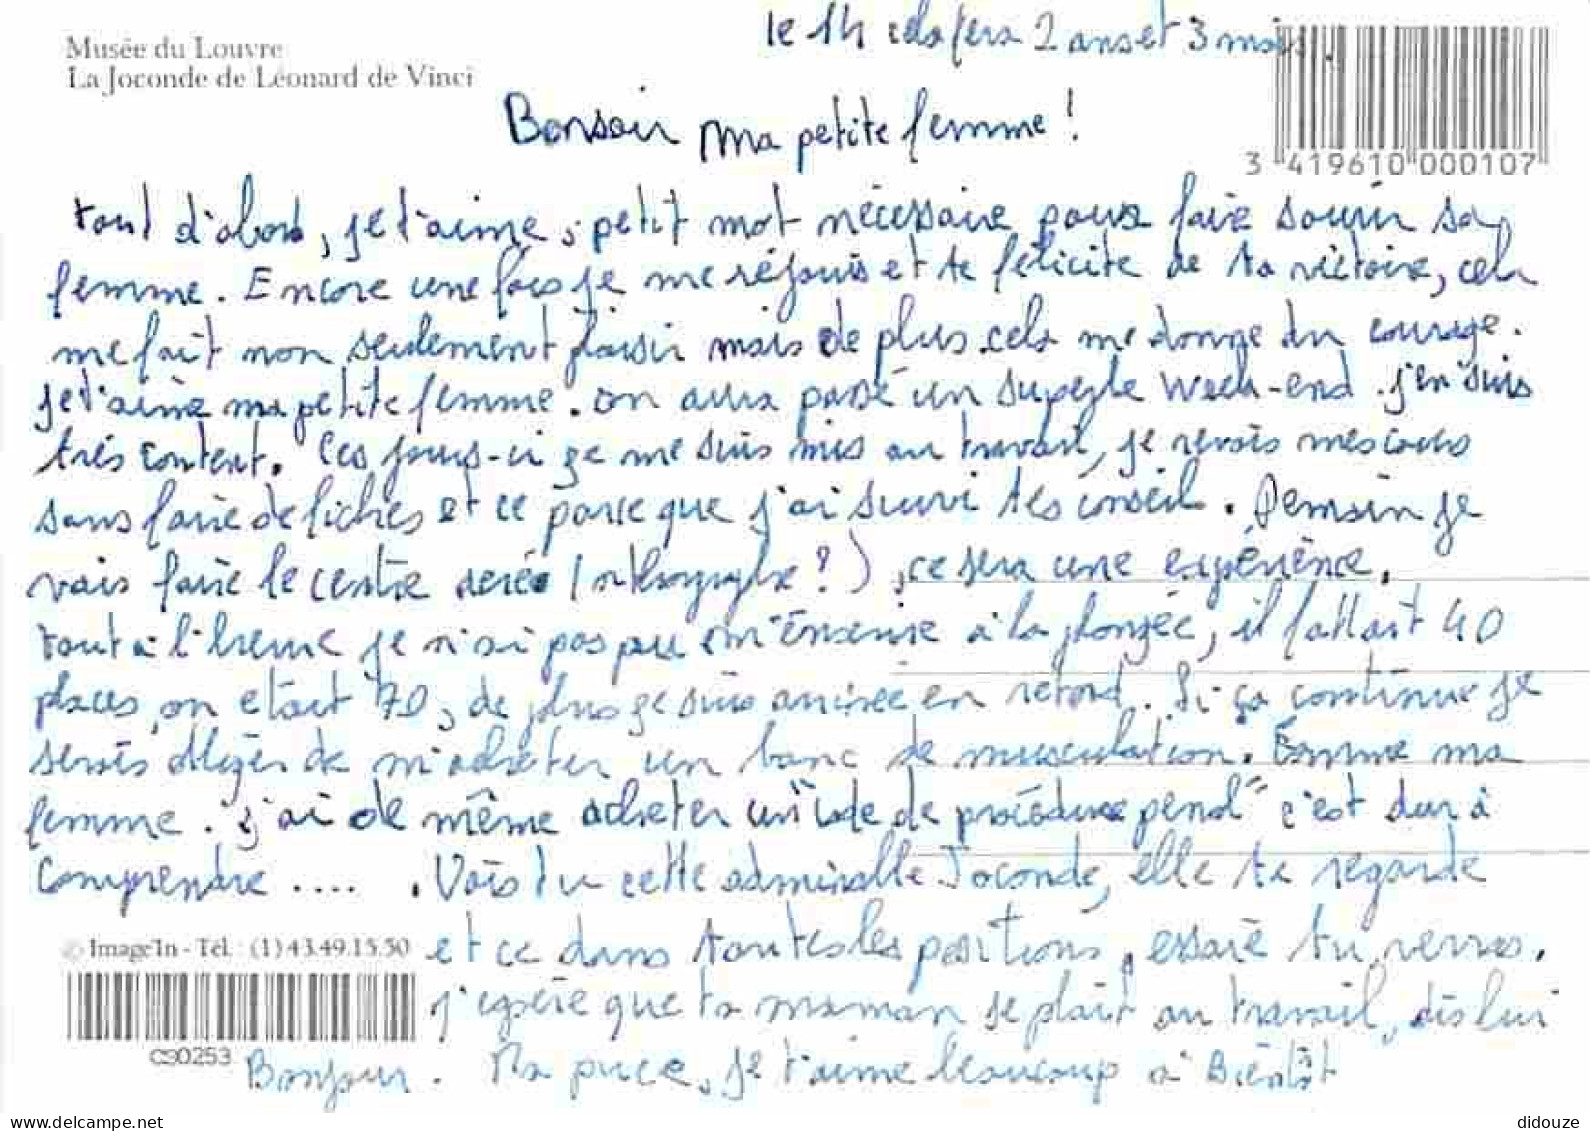 le 14 cela fera 2 ans et 3 mois.
Musée du Louvre
La Joconde de Léonard de Vinci
Bonsoir ma petite femme !
3 419610 000107
tout d'abord, je t'aime, petit mot nécessaire pour faire sourir sa
femme. Encore une fois je me réjouis et te félicite de ta victoire, cela
me fait non seulement plaisir mais de plus cela me donne du courage.
je t'aime ma petite femme. on aura passé un superbe week-end. j'en suis
très content. Ces jours-ci je me suis mis au travail, je revois mes cours
sans faire de fiches et ce parce que j'ai suivi tes conseil. Demain je
vais faire le centre aéré ( ?), ce sera une expérience.
tout à l'heure je n'ai pas pu m'inscrire à la plongée, il fallait 40
places, on etait 70, de plus je suis arrivée en retard. Si ça continue je
serais obligér de m'acheter un banc de musculation. Comme ma
femme. j'ai de même acheter un "code de procédure penal" c'est dur à
comprendre .... . Vois tu cette admirable Joconde, elle te regarde
et ce dans toutes les positions, essaie tu verras.
© Image'In - Tél. : (1) 43.49.15.30
j'espère que ta maman se plait au travail, dis lui
CS0253
Bonjour. Ma puce, je t'aime beaucoup à Bientôt
www.delcampe.net
didouze